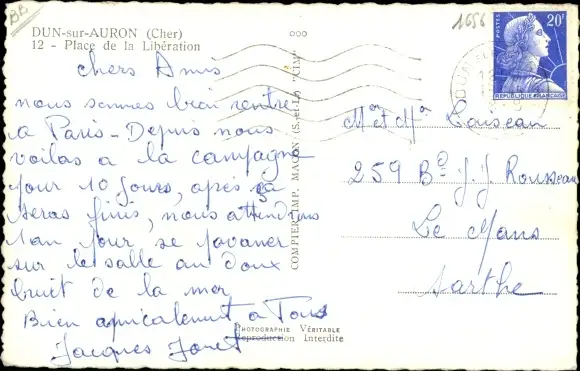 BB
DUN-sur-AURON (Cher)
12 - Place de la Libération
chers Amis
nous sommes bien rentré
a Paris - Depuis nous
voilas a la campagne
pour 10 jours, après ça
seras finis, nous attendons
1 an pour se
sur le sable au doux
bruit de la mer
Bien amicalement a Tous
Jacques
COMPIER IMP. MACON (S.-et-L.) "CIM"
PHOTOGRAPHIE VÉRITABLE
Reproduction Interdite
1656
POSTES
20F
REPUBLIQUE FRANÇAISE
DUN
Mr et Me Loiseau
259 Bd J.J. Rousseau
Le Mans
Sarthe